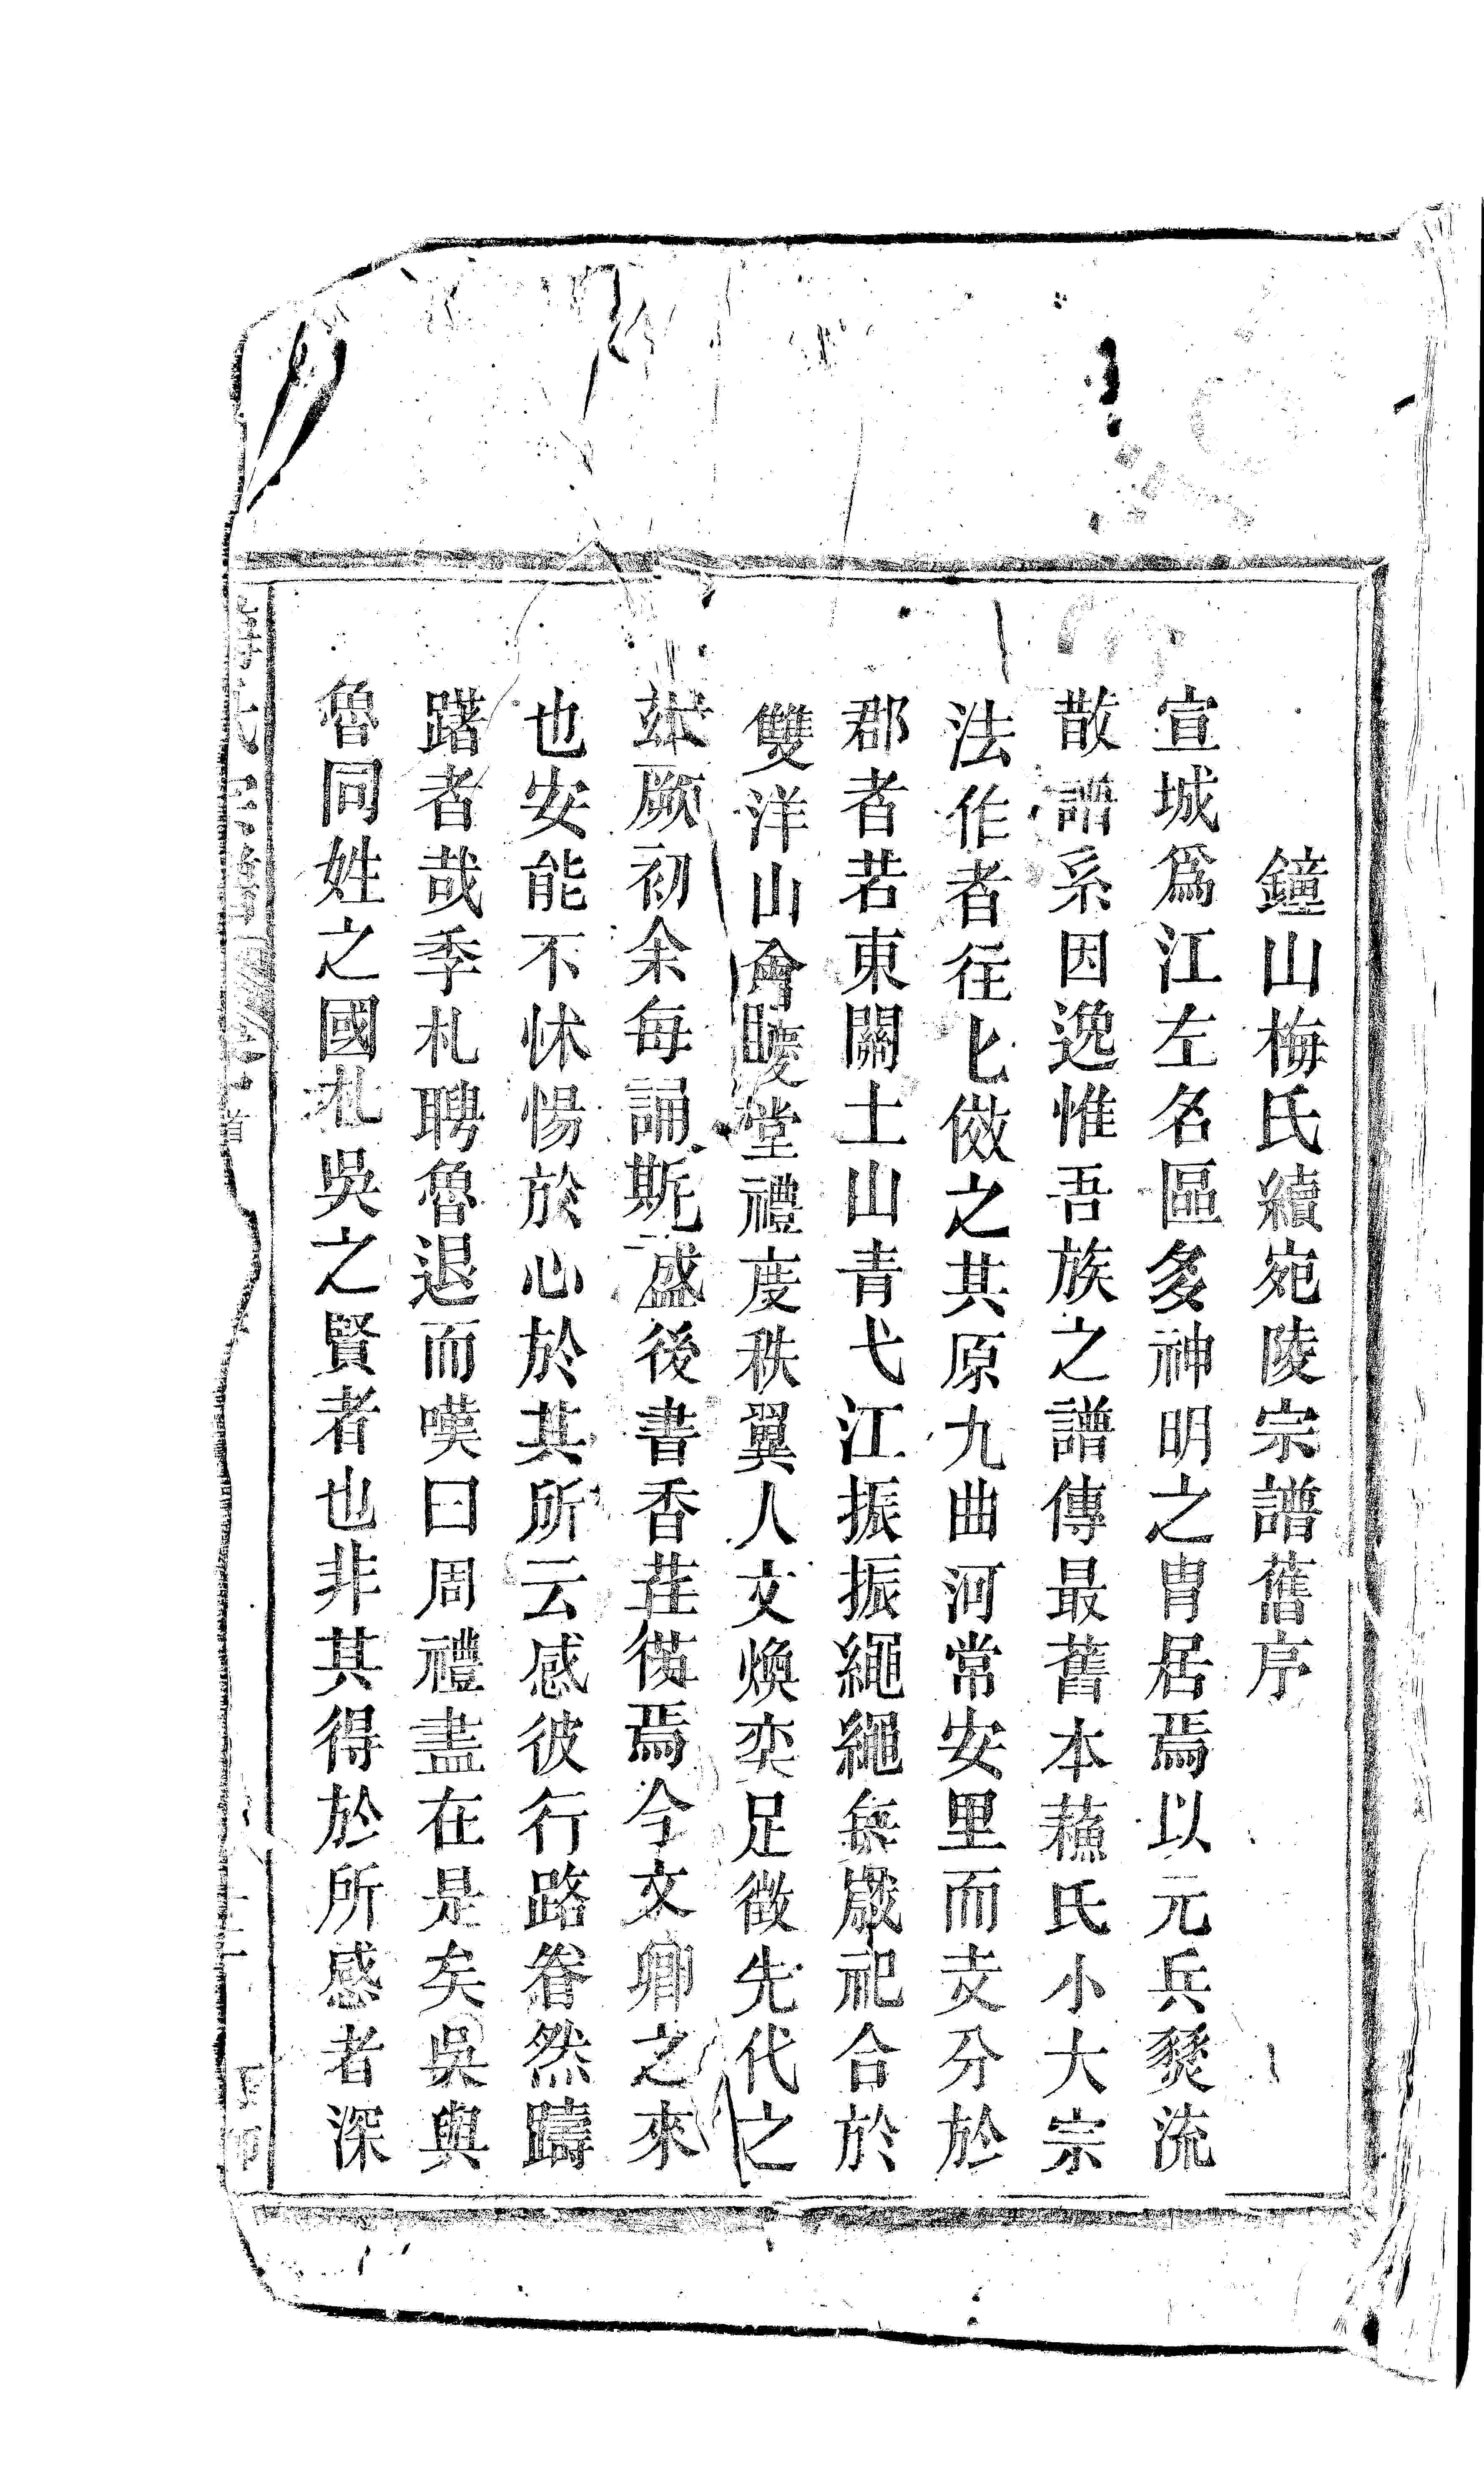 鐘山梅氏續宛陵宗譜舊序
宣城爲江左名區多神明之胄居焉以元兵燹流
散譜系因逸惟吾族之譜傳最舊本蘓氏小大宗
法作者往匕倣之其原九曲河常安里而支分於
郡者若東關土山青弋江振振繩繩每歲祀合於
雙洋山會曖堂禮度秩翼人文煥奕足徵先代之
厥初余每誦斯盛後書香荏焉今文卿之來
也安能不怵惕於心於其所云感彼行路眷然躊
躇者哉季札聘魯退而嘆曰周禮盡在是矣吳與
魯同姓之國札吳之賢者也非其得於所感者深
氏宗譜 首